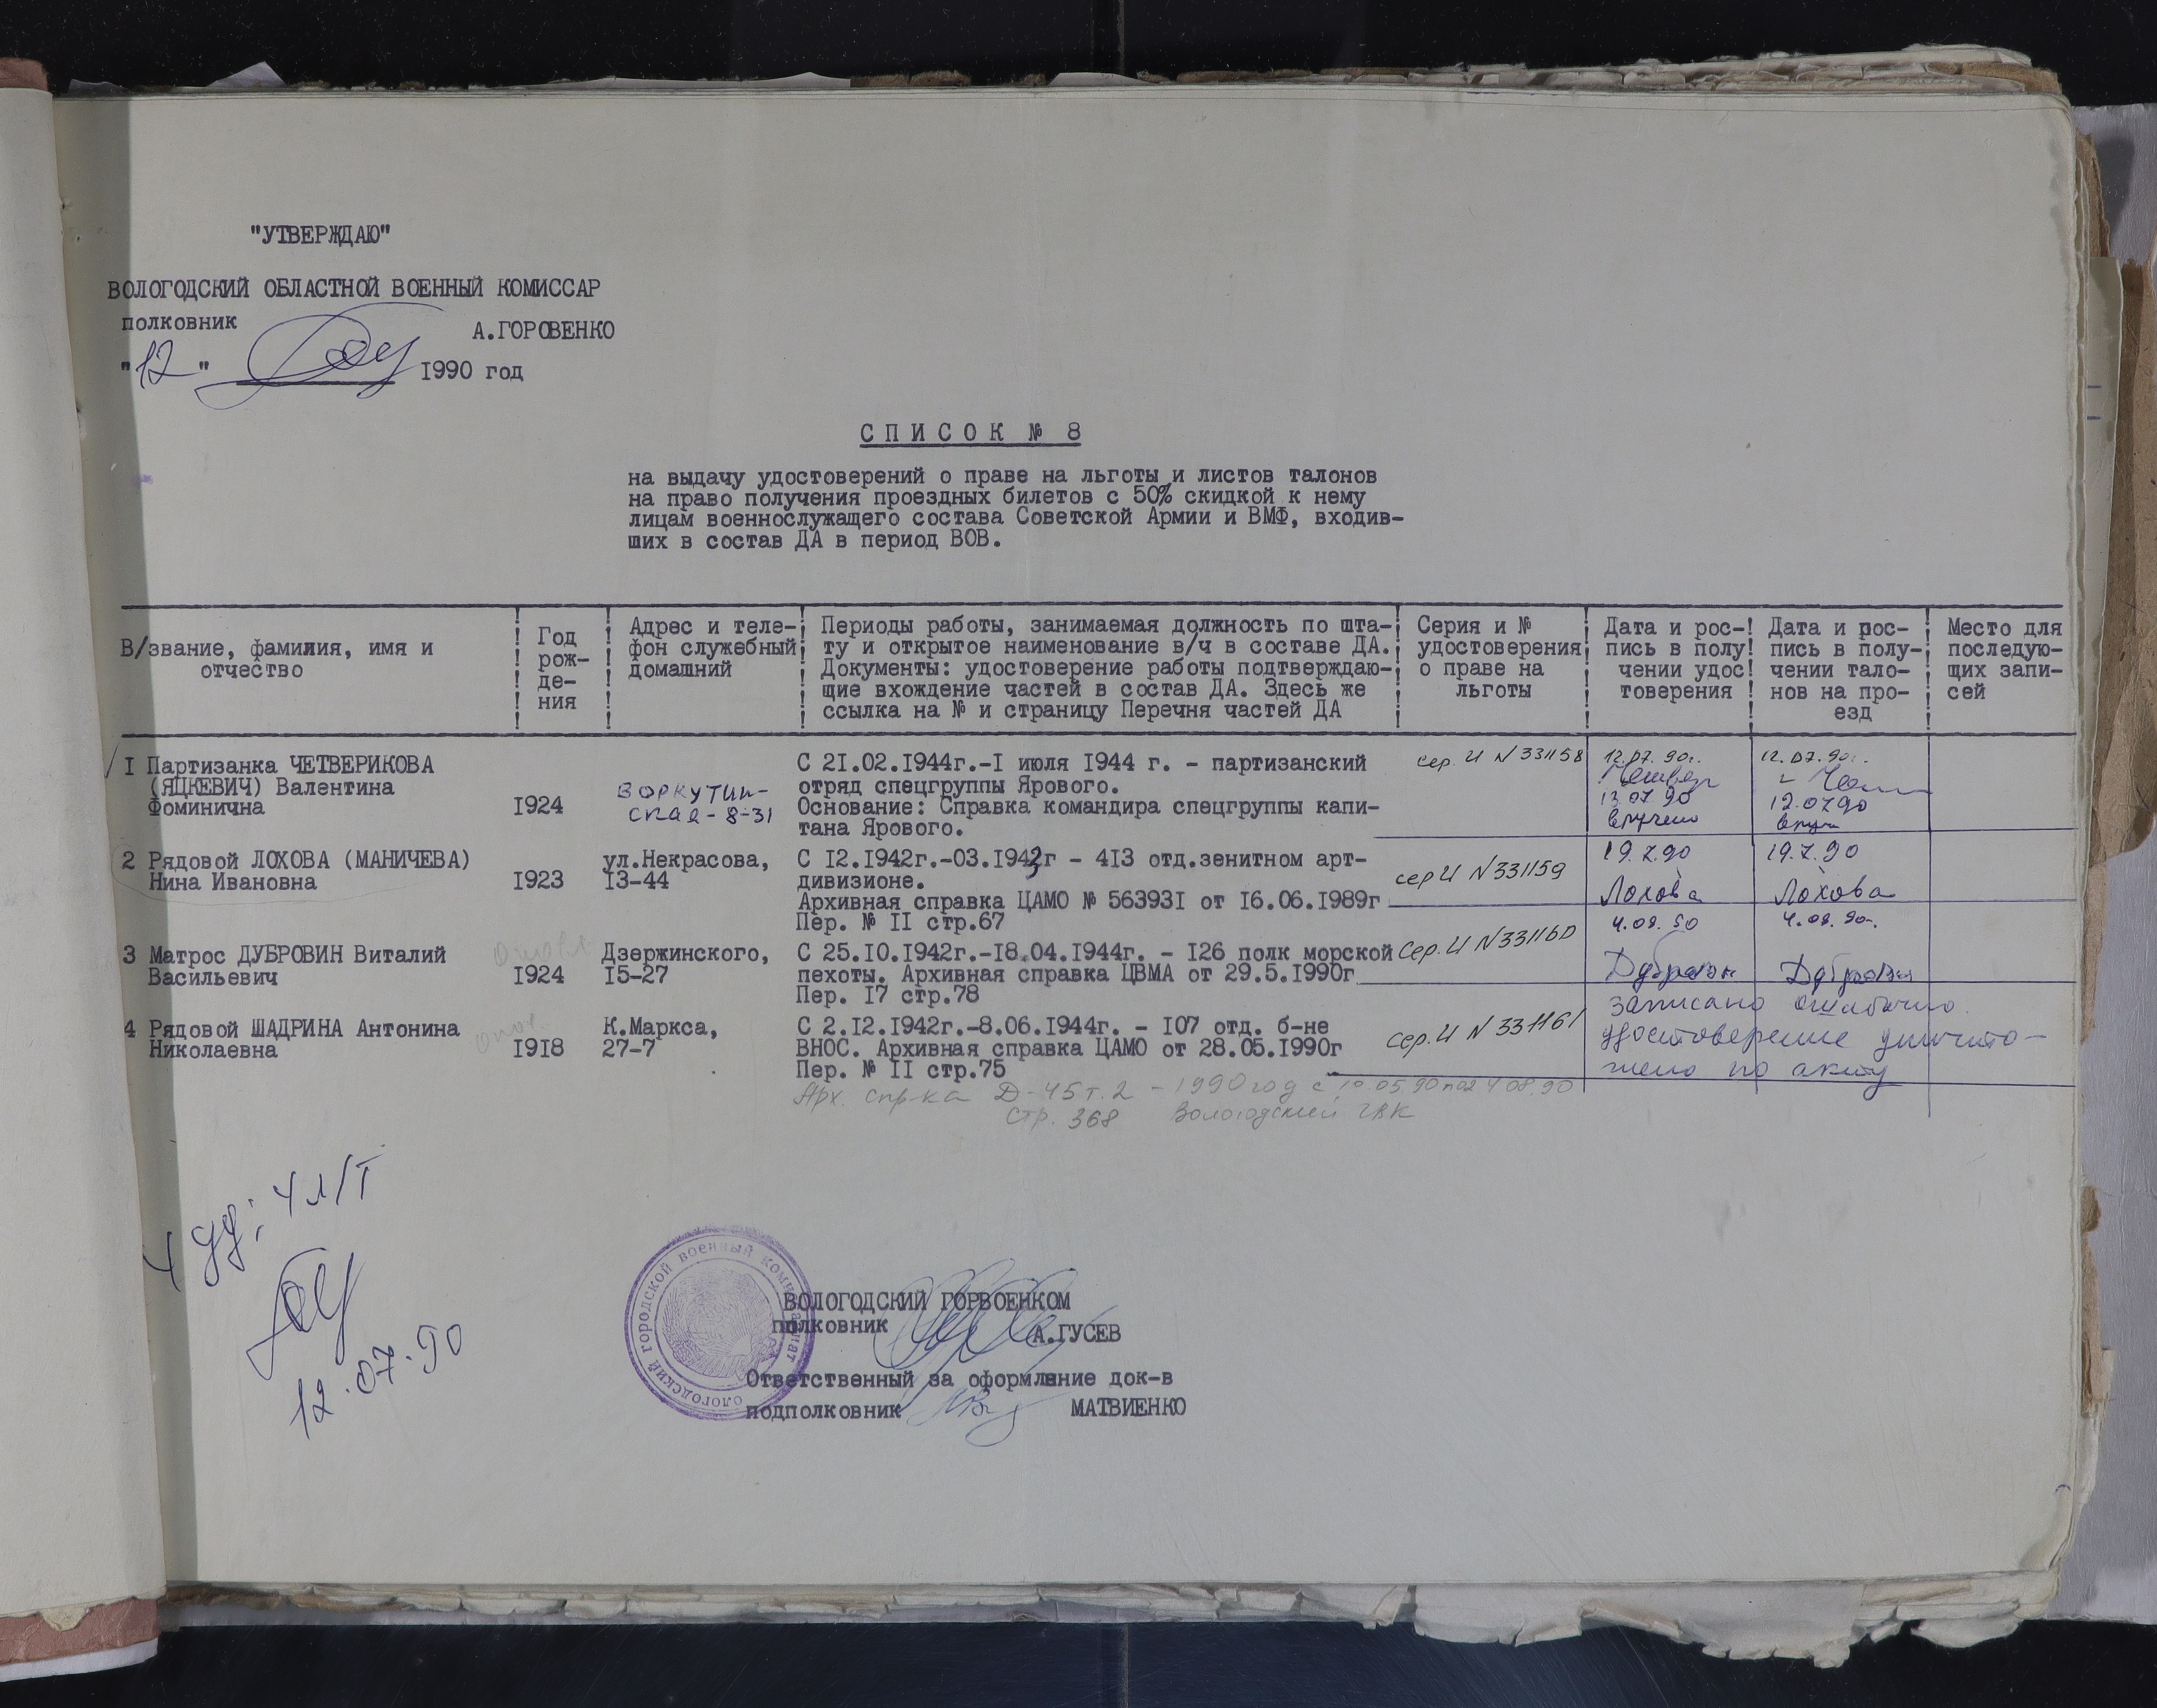 "УТВЕРЖДАЮ"
ВОЛОГОДСКИЙ ОБЛАСТНОЙ ВОЕННЫЙ КОМИССАР
полковник А.ГОРОВЕНКО
"12" 1990 год
СПИСОК № 8
на выдачу удостоверений о праве на льготы и листов талонов
на право получения проездных билетов с 50% скидкой к нему
лицам военнослужащего состава Советской Армии и ВМФ, входив-
ших в состав ДА в период ВОВ.
В/звание, фамилия, имя и
отчество
Год
рож-
де-
ния
Адрес и теле-
фон служебный
домашний
Периоды работы, занимаемая должность по шта-
ту и открытое наименование в/ч в составе ДА.
Документы: удостоверение работы подтверждаю-
щие вхождение частей в состав ДА. Здесь же
ссылка на № и страницу Перечня частей ДА
Серия и №
удостоверения
о праве на
льготы
Дата и рос-
пись в полу
чении удос
товерения
Дата и рос-
пись в полу-
чении тало-
нов на про-
езд
Место для
последую-
щих запи-
сей
I Партизанка ЧЕТВЕРИКОВА
(ЯЦКЕВИЧ) Валентина
Фоминична
I924
Воркутин-
ская-8-31
С 2I.02.I944г.-I июля I944 г. - партизанский
отряд спецгруппы Ярового.
Основание: Справка командира спецгруппы капи-
тана Ярового.
сер. И N 331158
12.07.90г.
13.07.90
вручено
12.07.90г.
12.07.90
2 Рядовой ЛОХОВА (МАНИЧЕВА)
Нина Ивановна
I923
ул.Некрасова,
I3-44
С I2.I942г.-03.I943г - 4I3 отд.зенитном арт-
дивизионе.
Архивная справка ЦАМО № 56393I от I6.06.I989г
Пер. № II стр.67
сер И N 331159
19.7.90
Лохова
19.7.90
Лохова
3 Матрос ДУБРОВИН Виталий
Васильевич
I924
Дзержинского,
I5-27
С 25.I0.I942г.-I8.04.I944г. - I26 полк морской
пехоты. Архивная справка ЦВМА от 29.5.I990г
Пер. I7 стр.78
Сер. И N 331160
4.08.90
Дубровин
4.08.90г.
Дубровин
4 Рядовой ШАДРИНА Антонина
Николаевна
I9I8
К.Маркса,
27-7
С 2.I2.I942г.-8.06.I944г. - I07 отд. б-не
ВНОС. Архивная справка ЦАМО от 28.05.I990г
Пер. № II стр.75
сер. И N 331161
записано ошибочно
удостоверение уничто-
жено по акту
Арх. спр-ка Д-45 т.2 - 1990 год с 10.05.90 по 24.08.90
стр. 368 Вологодский ГВК
4 уд; 4 л/т
12.07.90
ВОЛОГОДСКИЙ ГОРОДСКОЙ ВОЕННЫЙ КОМИССАРИАТ
ВОЛОГОДСКИЙ ГОРВОЕНКОМ
полковник А.ГУСЕВ
Ответственный за оформление док-в
подполковник МАТВИЕНКО